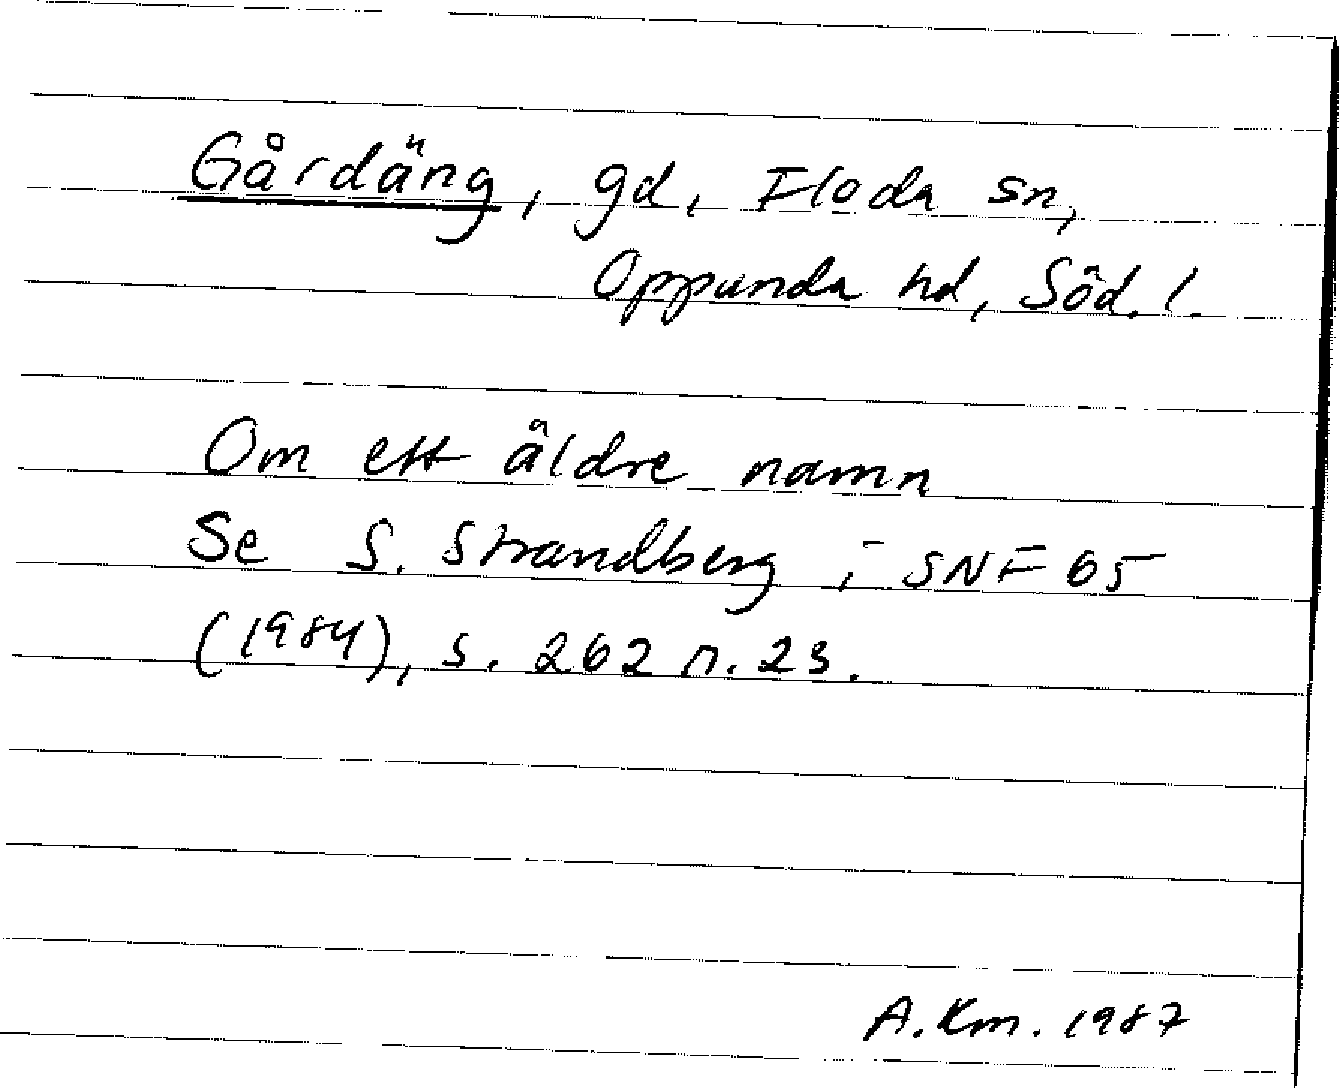 Gårdäng, gd, Floda sn,
Oppunda hd, Söd. l.
Om ett äldre namn
Se S. Strandberg i SNF 65
(1984), s. 262 n. 23.
A. Km. 1987